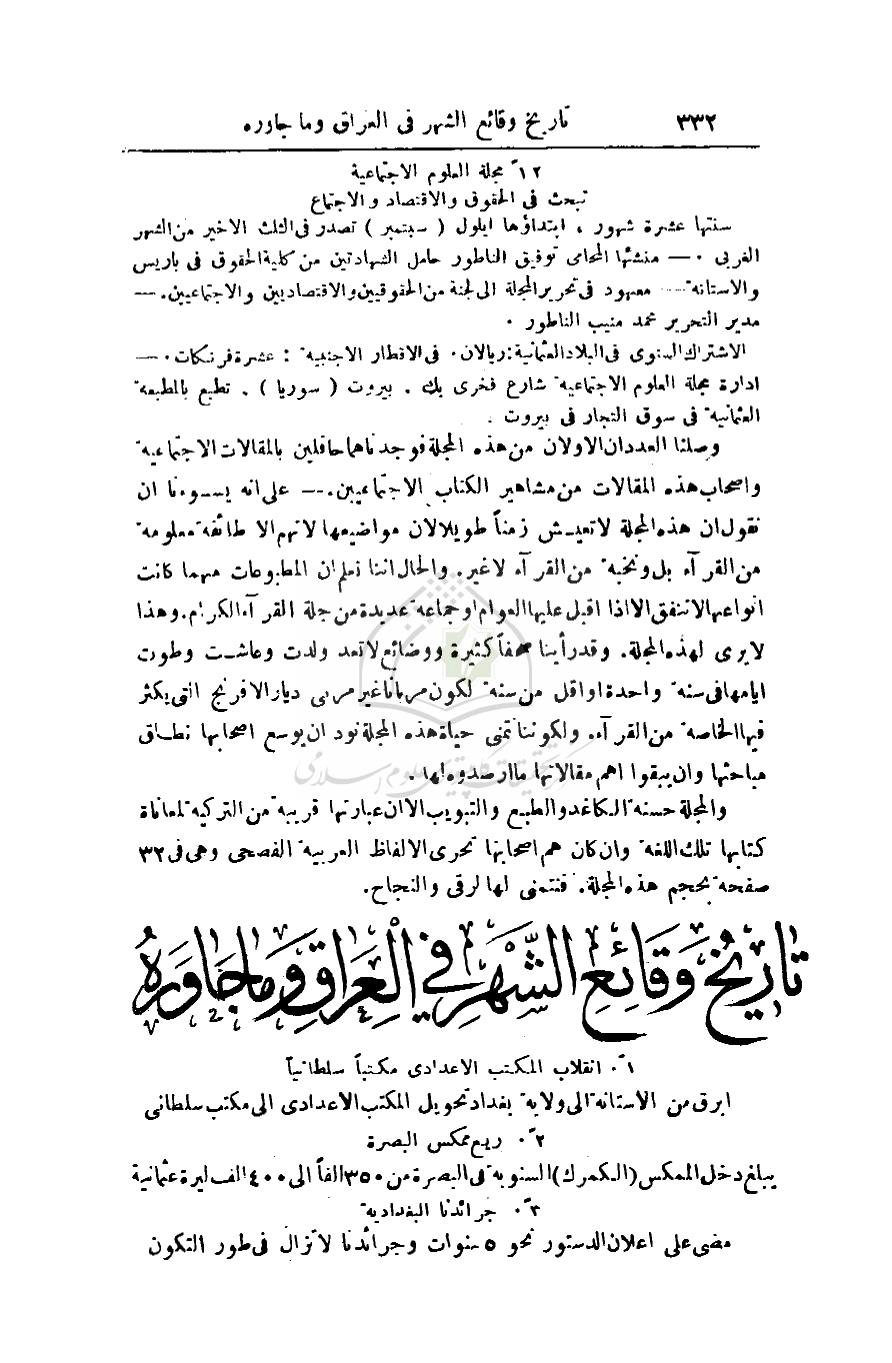 ٣٣٢ تاريخ وقائع الشهر فى العراق وما جاوره
١٢ً مجلة العلوم الاجتماعية
تبحث فى الحقوق والاقتصاد والاجتماع
سنتها عشرة شهور ، ابتداؤها ايلول ( سبتمبر ) تصدر فى الثلث الاخير من الشهر
الغربى ٠ — منشئها المحامى توفيق الناطور حامل الشهادتين من كلية الحقوق فى باريس
والاستانة — معهود فى تحرير المجلة الى لجنة من الحقوقيين والاقتصاديين والاجتماعيين. —
مدير التحرير محمد منيب الناطور ٠
الاشتراك السنوى فى البلاد العثمانية : ريالان ٠ فى الاقطار الاجنبية : عشرة فرنكات ٠ —
ادارة مجلة العلوم الاجتماعية شارع فخرى بك . بيروت ( سوريا ) . تطبع بالمطبعة
العثمانية فى سوق التجار فى بيروت .
وصلنا العددان الاولان من هذه المجلة فوجدناهما حافلين بالمقالات الاجتماعية
واصحاب هذه المقالات من مشاهير الكتاب الاجتماعيين. — على انه يسوءنا ان
نقول ان هذه المجلة لا تعيش زمناً طويلا لان مواضيعها لا تهم الا طائفة معلومة
من القرآء بل ونخبة من القرآء لا غير. والحال اننا نعلم ان المطبوعات مهما كانت
انواعها لا تنفق الا اذا اقبل عليها العوام او جماعة عديدة من جلة القرآء الكرام. وهذا
لا يرى لهذه المجلة. وقد رأينا صحفاً كثيرة ووضائع لا تعد ولدت وعاشت وطوت
ايامها فى سنة واحدة او اقل من سنة لكون مربانا غير مربى ديار الافرنج التى يكثر
فيها الخاصة من القرآء. ولكوننا نتمنى حياة هذه المجلة نود ان يوسع اصحابها نطاق
مباحثها وان يبقوا اهم مقالاتها ما ارصدوه لها .
والمجلة حسنة الكاغد والطبع والتبويب الا ان عبارتها قريبة من التركية لمعاناة
كتابها تلك اللغة وان كان هم اصحابها تحرى الالفاظ العربية الفصحى وهى فى ٣٢
صفحة بحجم هذه المجلة. فنتمنى لها الرقى والنجاح.
تاريخ وقائع الشهر فى العراق وما جاوره
١ً٠ انقلاب المكتب الاعدادى مكتباً سلطانياً
ابرق من الاستانة الى ولاية بغداد تحويل المكتب الاعدادى الى مكتب سلطانى
٢ً٠ ريع مكس البصرة
يبلغ دخل المكس (الكمرك) السنوية فى البصرة من ٣٥٠ الفاً الى ٤٠٠ الف ليرة عثمانية
٣ً٠ جرائدنا البغدادية
مضى على اعلان الدستور نحو ٥ سنوات وجرائدنا لا تزال فى طور التكون